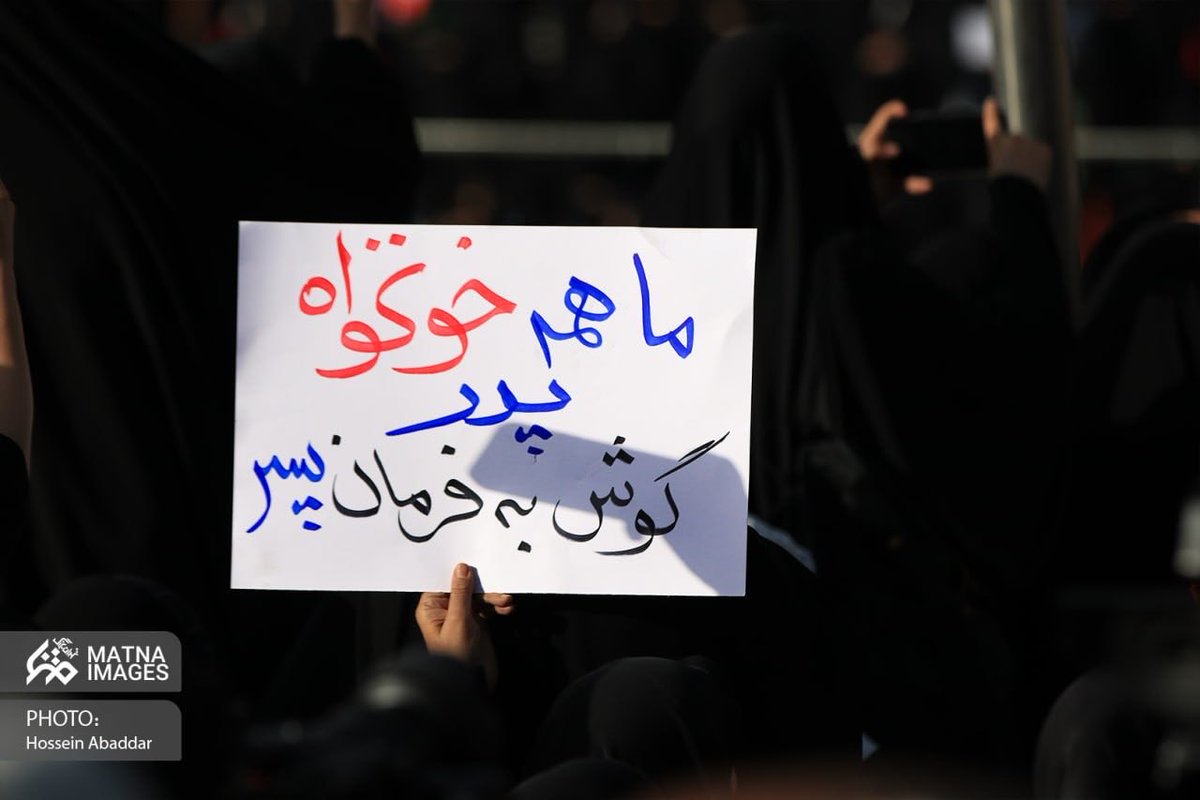 ما همه خونخواه
پدر
گوش به فرمان پسر
MATNA
IMAGES
PHOTO:
Hossein Abaddar